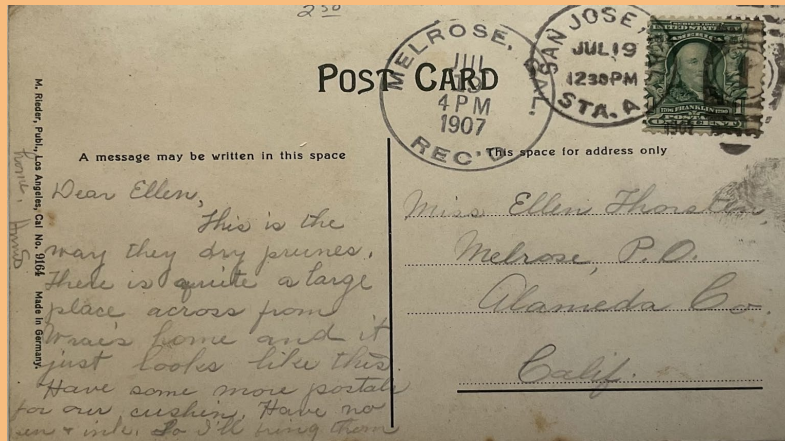 2 50
POST CARD
MELROSE, CAL.
JUL
19
4 PM
1907
REC'D
SAN JOSE,
JUL 19
1230 PM
STA. A
1907
FRANKLIN
POSTAGE
M. Rieder, Publ., Los Angeles, Cal No. 9164 Made in Germany.
A message may be written in this space
This space for address only
Dear Ellen,
This is the
way they dry prunes.
There is quite a large
place across from
home and it
just looks like this.
Have some more postals
for our cushin. Have no
pen & ink. So I'll bring them
home.
Miss Ellen Thorsten,
Melrose, P.O.
Alameda Co.
Calif.